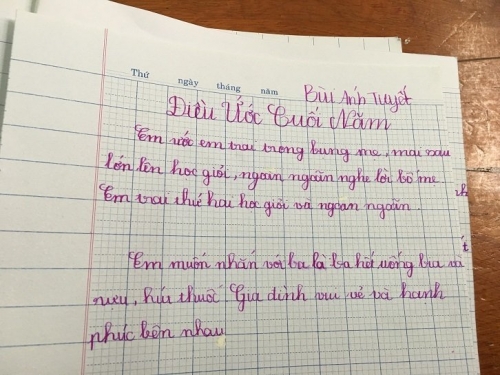 Thứ ngày tháng năm
Bùi Ánh Tuyết
Điều Ước Cuối Năm
Em ước em trai trong bụng mẹ, mai sau
lớn lên học giỏi, ngoan ngoãn nghe lời bố mẹ
Em trai thứ hai học giỏi và ngoan ngoãn.
Em muốn nhắn với ba là ba hết uống bia và
rượu, hút thuốc Gia đình vui vẻ và hạnh
phúc bên nhau